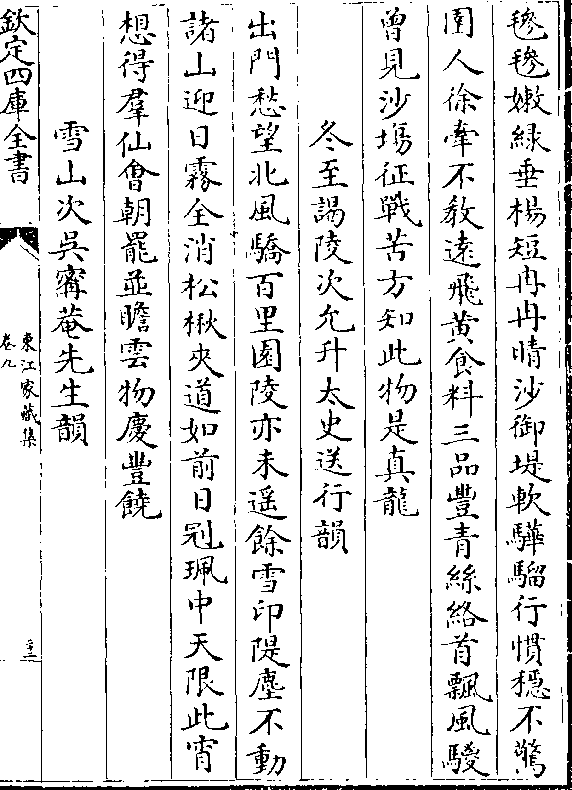 毿毿嫩緑垂楊短冉冉晴沙御堤軟驊騮行慣穏不驚
圉人徐牽不教逺飛黄食料三品豐青絲絡首飄風騣
曾見沙場征戰苦方知此物是真龍
冬至謁陵次允升太史送行韻
出門愁望北風驕百里園陵亦未遥餘雪印隄塵不動
諸山迎日霧全消松楸夾道如前日冠珮中天限此宵
想得羣仙㑹朝罷並瞻雲物慶豐饒
雪山次吳寗菴先生韻
欽定四庫全書
東江家藏集
卷九